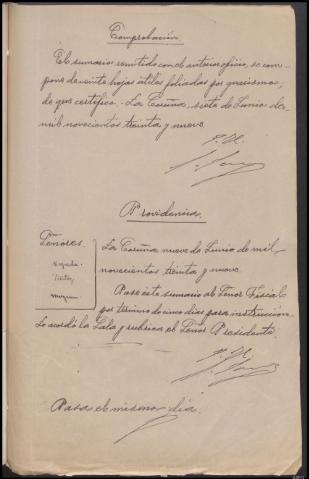 Comprobación
El sumario remitido con el anterior oficio, se com-
pone de veinte hojas útiles foliadas por guarismos,
de que certifico. - La Coruña, siete de Junio de
mil novecientos treinta y nueve.
Providencia.
Señores.
La Coruña nueve de Junio de mil
novecientos treinta y nueve.
Pase éste sumario al Señor Fiscal
por término de cinco días para instrucción.
Lo acordó la Sala y rubrica el Señor Presidente.
Pasa el mismo día.